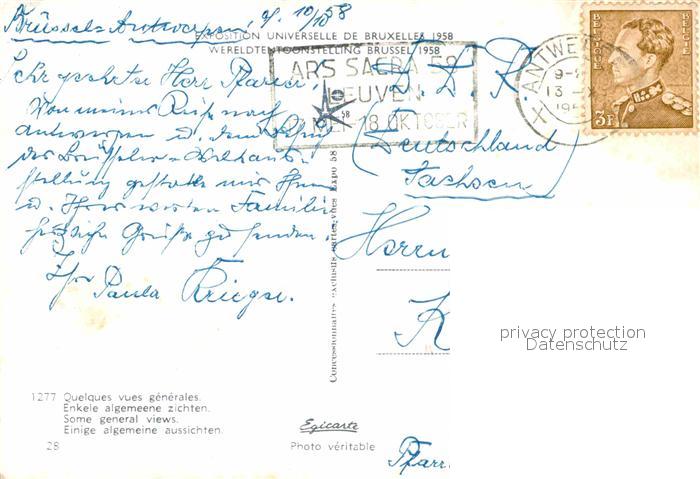 Brüssel-Antwerpen, d. 10/10 58
EXPOSITION UNIVERSELLE DE BRUXELLES 1958
WERELDTENTOONSTELLING BRUSSEL 1958
ARS SACRA 58
LEUVEN
18 OKTOBER
58
ANTWERPEN
X
9-
13
195
BELGIQUE
BELGIE
3F
Sehr geehrter Herr Pfarrer,
Von meiner Reise nach
Antwerpen u. dem
der Brüsseler-Weltaus-
stellung gestatte mir Ihnen
u. Ihrer werten Familie
herzliche Grüße zu senden.
Ihre Paula
D. D. R.
(Deutschland)
Sachsen
Herrn
K
Pfarr.
privacy protection
Datenschutz
Concessionnaires exclusifs cartes-vues Expo 58
1277 Quelques vues générales.
Enkele algemeene zichten.
Some general views.
Einige algemeine aussichten.
28
Egicarte
Photo véritable